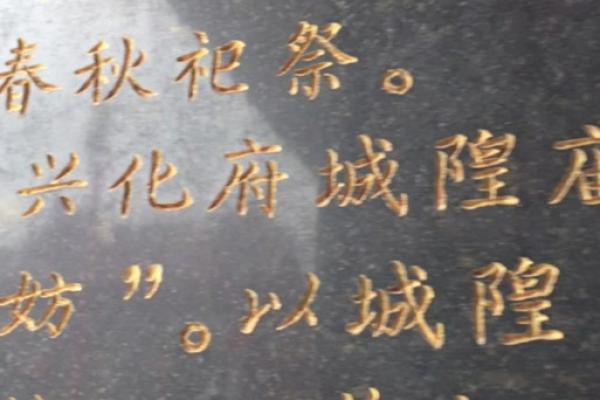 春秋祀祭。
兴化府城隍庙
妨”。以城隍